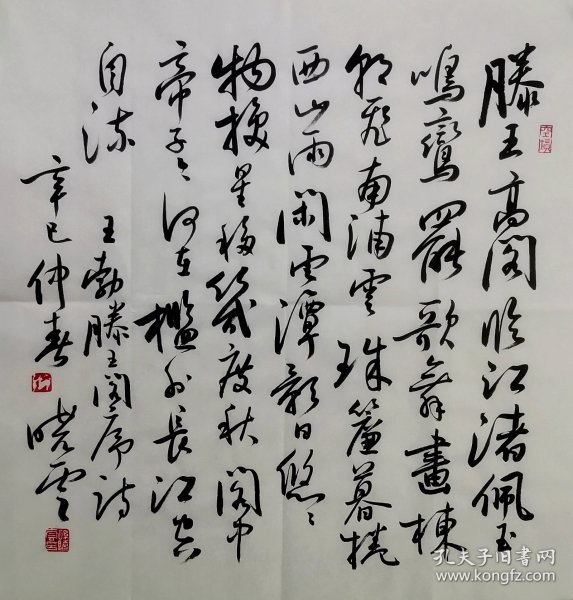 滕王高阁临江渚佩玉
鸣鸾罢歌舞画栋
朝飞南浦云珠帘暮捲
西山雨闲云潭影日悠々
物换星移几度秋阁中
帝子今何在槛外长江空
自流
王勃滕王阁序诗
辛巳仲春
晓云
孔夫子旧书网
www.kongfz.com